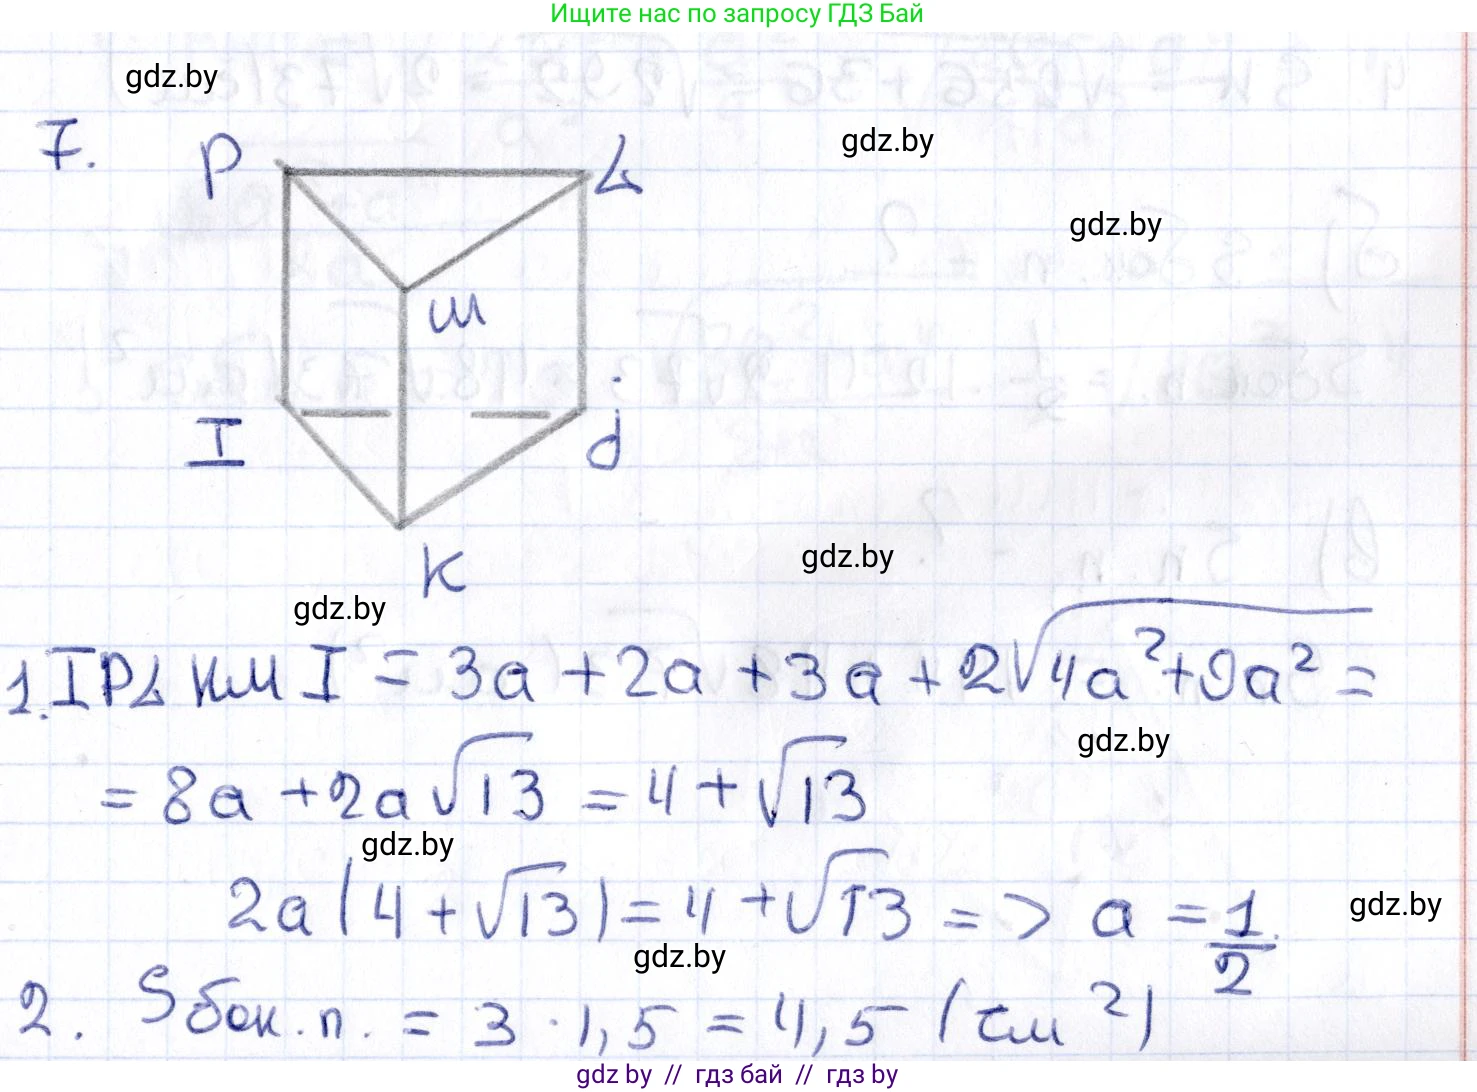 Ищите нас по запросу ГДЗ Бай
gdz.by
7.
P
L
gdz.by
gdz.by
M
I
d
K
gdz.by
gdz.by
1. IPLKMI = 3a + 2a + 3a + 2√4a²+9a² =
gdz.by
= 8a + 2a√13 = 4 + √13
gdz.by
2a(4 + √13) = 4 + √13 => a = 1/2
gdz.by
gdz.by
2. Sбок.п. = 3 · 1,5 = 4,5 (см²)
gdz by // гдз бай // гдз by